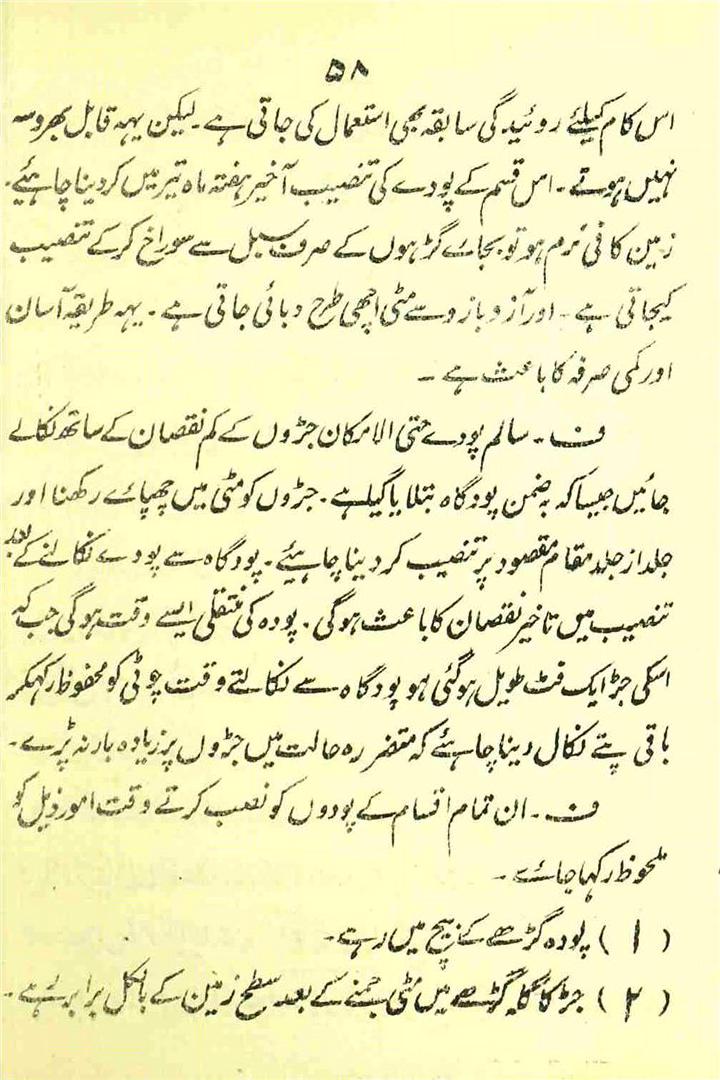 ۵۸
اس کام کیلئے روئیدگی سابقہ بھی استعمال کی جاتی ہے۔ لیکن یہہ قابل بھروسہ
نہیں ہوتے۔ اس قسم کے پودے کی تنصیب آخیر ہفتہ ماہ تیر میں کردینا چاہئیے۔
زمین کافی نرم ہو تو بجائے گڑھوں کے صرف سبل سے سوراخ کرکے تنصیب
کیجاتی ہے۔ اور آزو بازو سے مٹی اچھی طرح دبائی جاتی ہے۔ یہہ طریقہ آسان
اور کمی صرفہ کا باعث ہے۔
ف۔ سالم پودے حتی الامکان جڑوں کے کم نقصان کے ساتھ نکالے
جائیں جیسا کہ بہ ضمن پودگاہ بتلایا گیا ہے۔ جڑوں کو مٹی میں چھپائے رکھنا اور
جلد از جلد مقام مقصود پر تنصیب کردینا چاہئیے۔ پودگاہ سے پودے نکالنے کے بعد
تنصیب میں تاخیر نقصان کا باعث ہوگی۔ پودہ کی منتقلی ایسے وقت ہوگی جب کہ
اسکی جڑ ایک فٹ طویل ہوگئی ہو پودگاہ سے نکالتے وقت چوٹی کو محفوظ رکھکر
باقی پتے نکال دینا چاہئے کہ متضررہ حالت میں جڑوں پر زیادہ بار نہ پڑے۔
ف۔ ان تمام اقسام کے پودوں کو نصب کرتے وقت امور ذیل کو
ملحوظ رکھا جائے۔
(۱) پودہ گڑھے کے بیچ میں رہے۔
(۲) جڑ کا گلہ گڑھے میں مٹی جمنے کے بعد سطح زمین کے بالکل برابر رہے۔